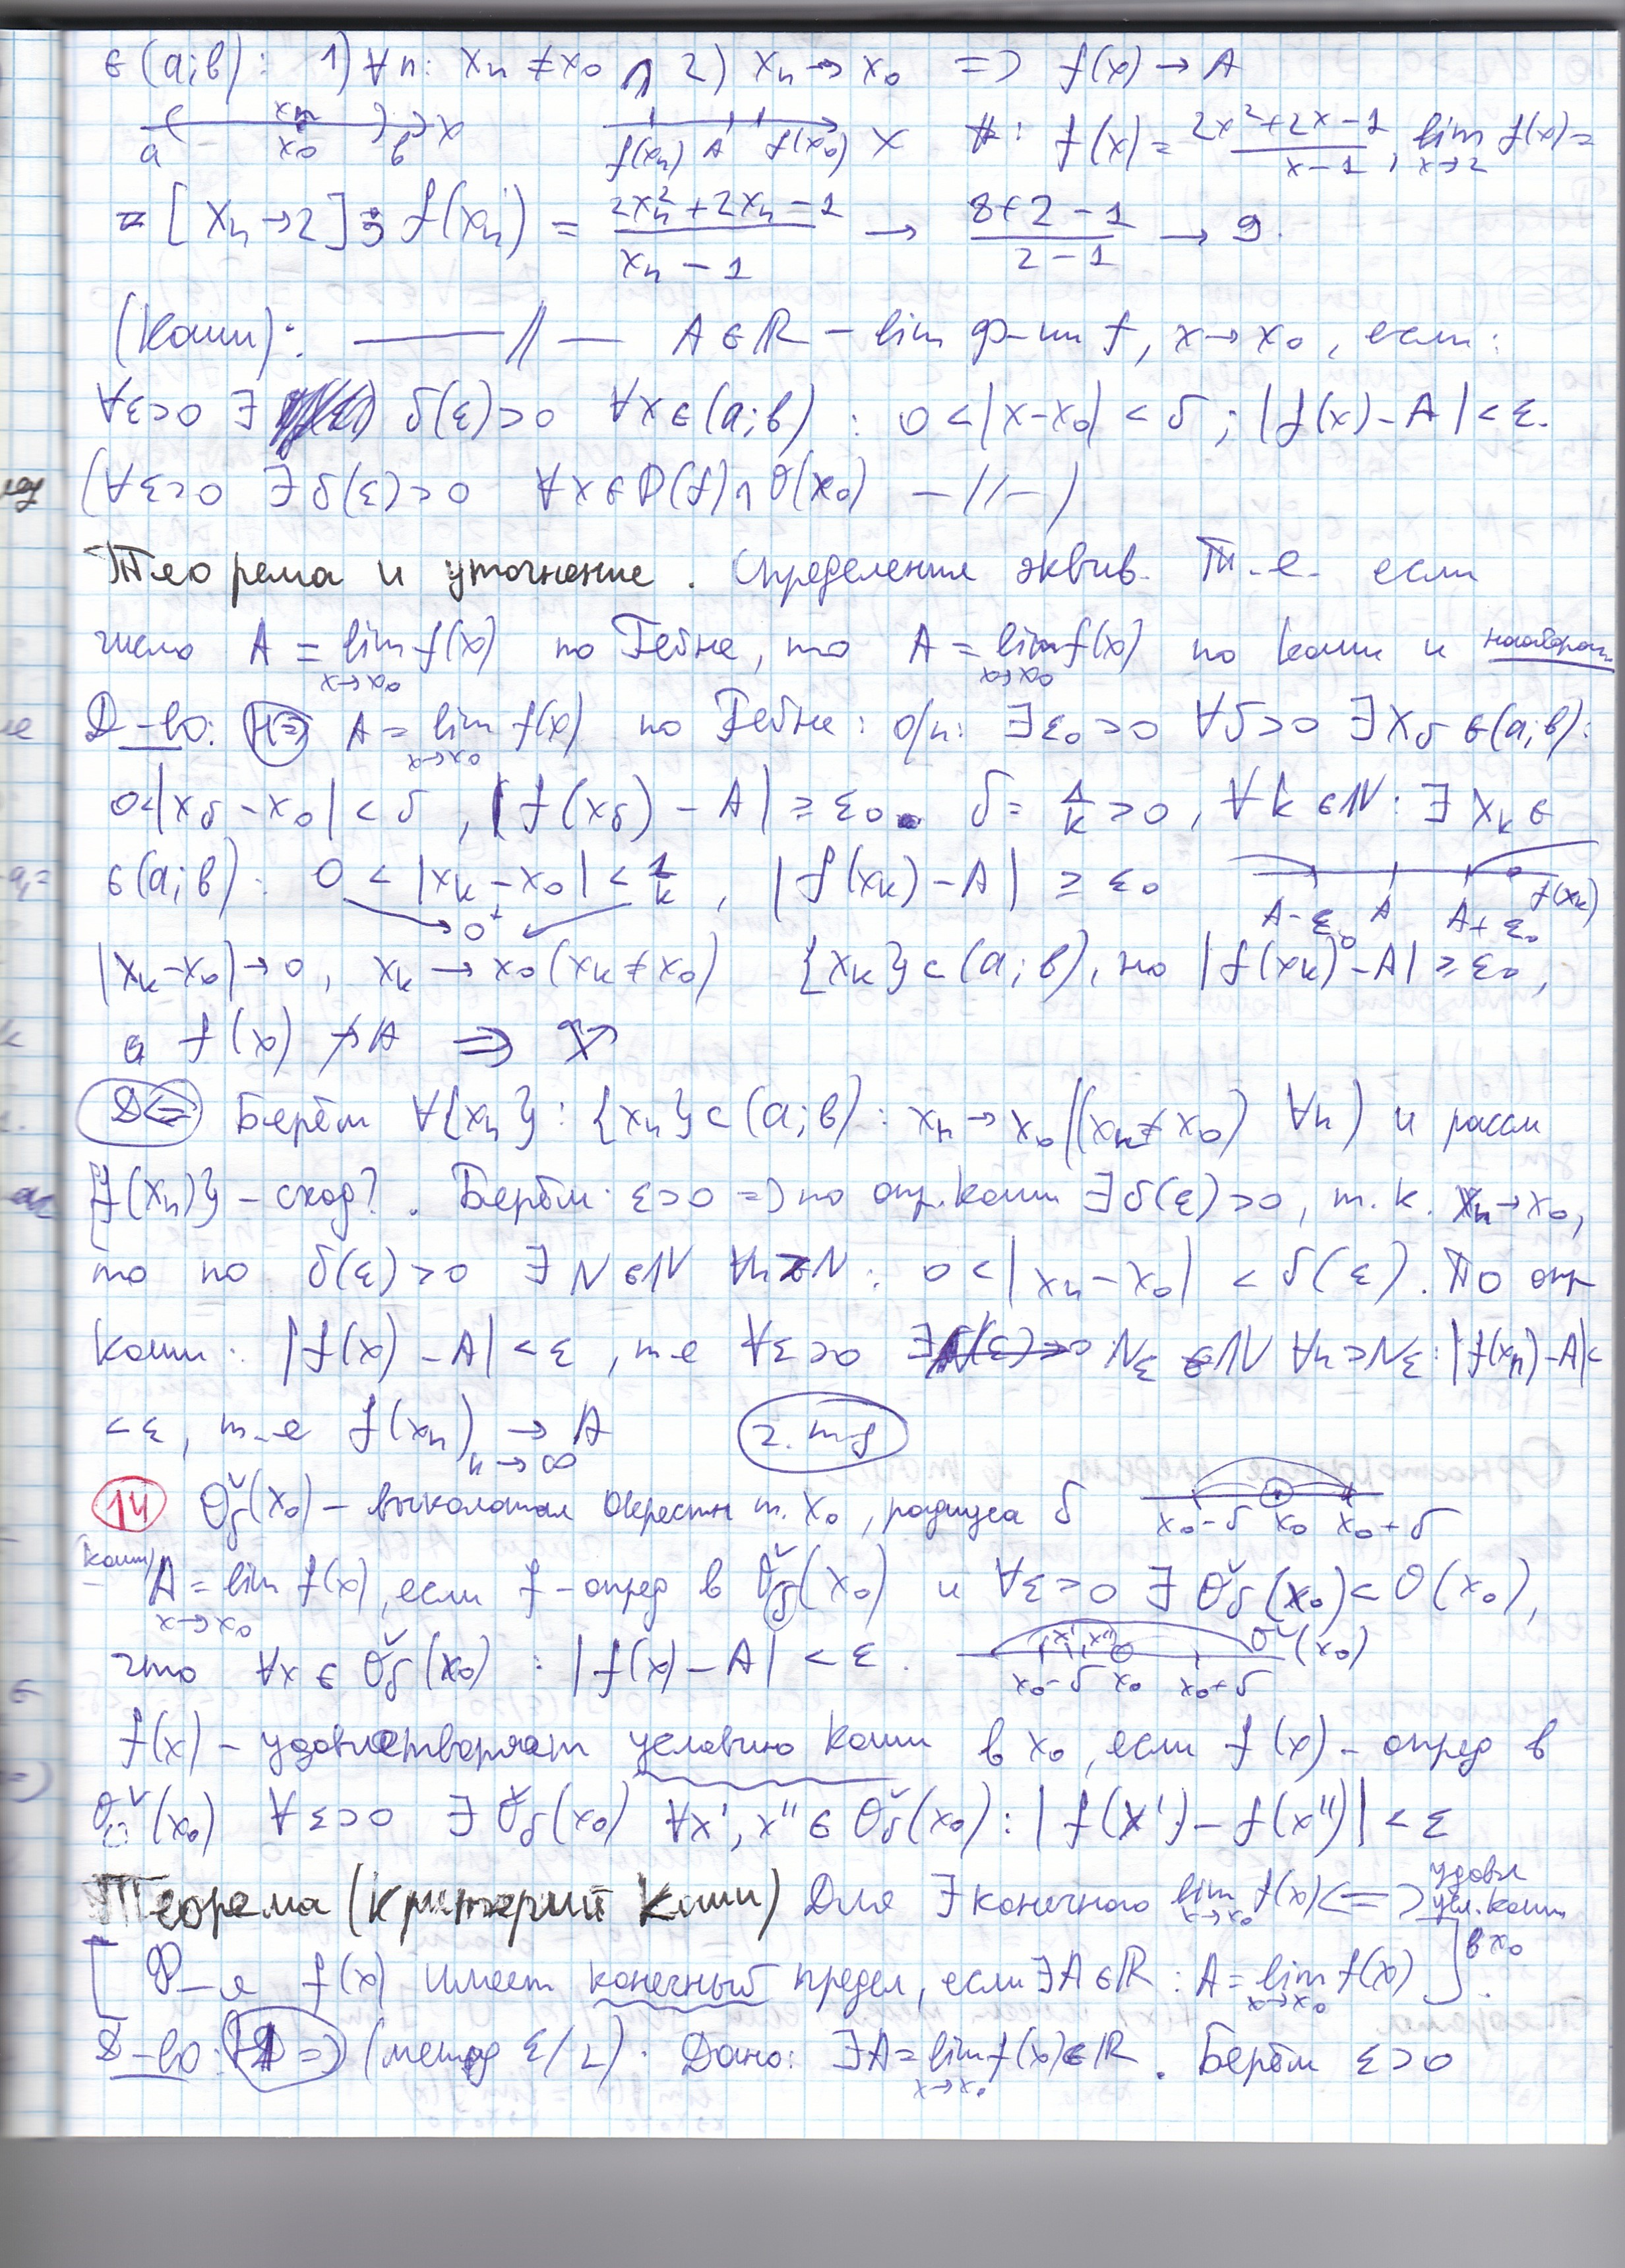 ∈(a;b): 1) ∀n: xₙ ≠ x₀ ∧ 2) xₙ → x₀ => f(x) → A
a xₙ x₀ b x f(xₙ) A f(x₀) x #: f(x) = (2x²+2x−1)/(x−1), lim_{x→2} f(x) =
= [xₙ→2]; f(xₙ) = (2xₙ²+2xₙ−1)/(xₙ−1) → (8+2−1)/(2−1) → 9.
(Коши): —//— A∈ℝ – lim ф-ции f, x→x₀, если:
∀ε>0 ∃ δ(ε)>0 ∀x∈(a;b) : 0<|x−x₀|<δ ; |f(x)−A|<ε.
(∀ε>0 ∃δ(ε)>0 ∀x∈D(f)∩O(x₀) —//—)
Теорема и уточнение. Определения эквив. Т.е. если
число A = lim_{x→x₀} f(x) по Гейне, то A = lim_{x→x₀} f(x) по Коши и наоборот
Д-во: (H=>) A = lim_{x→x₀} f(x) по Гейне: о/п: ∃ε₀>0 ∀δ>0 ∃x_δ∈(a;b):
0<|x_δ−x₀|<δ, |f(x_δ)−A| ≥ ε₀. δ = 1/k >0, ∀k∈ℕ: ∃x_k∈
∈(a;b): 0 < |x_k−x₀| < 1/k, |f(x_k)−A| ≥ ε₀ A−ε₀ A A+ε₀ f(x_k)
0
|x_k−x₀|→0, x_k → x₀ (x_k≠x₀) {x_k}⊂(a;b), но |f(x_k)−A| ≥ ε₀,
а f(x) ↛ A ⇒
(D<=) Берём ∀{xₙ}: {xₙ}⊂(a;b): xₙ→x₀ ((xₙ≠x₀) ∀n) и рассм
{f(xₙ)} – сход?. Берём ε>0 => по опр. Коши ∃δ(ε)>0, т.к. xₙ→x₀,
то по δ(ε)>0 ∃N∈ℕ ∀n>N: 0<|xₙ−x₀| < δ(ε). По опр
Коши: |f(x)−A|<ε, т.е ∀ε>0 ∃ N_ε∈ℕ ∀n>N_ε: |f(xₙ)−A|<
<ε, т.е f(xₙ) →_{n→∞} A ч.тд
14 Ǒ_δ(x₀) – выколотая окрестн т. x₀, радиуса δ x₀−δ x₀ x₀+δ
Коши/ A = lim_{x→x₀} f(x), если f – опред в Ǒ_δ(x₀) и ∀ε>0 ∃ Ǒ_δ(x₀)⊂O(x₀),
что ∀x∈Ǒ_δ(x₀) : |f(x)−A|<ε. x' x'' x₀−δ x₀ x₀+δ Ǒ(x₀)
f(x) – удовлетворяет условию Коши в x₀, если f(x) – опред в
Ǒ(x₀) ∀ε>0 ∃Ǒ_δ(x₀) ∀x', x''∈Ǒ_δ(x₀): |f(x')−f(x'')|<ε
Теорема (Критерий Коши) Для ∃ конечного lim_{x→x₀} f(x) <=> удовл усл. Коши в x₀
[Ф-я f(x) имеет конечный предел, если ∃A∈ℝ: A = lim_{x→x₀} f(x)].
Д-во: (=>) (метод ε/2). Дано: ∃A = lim_{x→x₀} f(x)∈ℝ. Берём ε>0